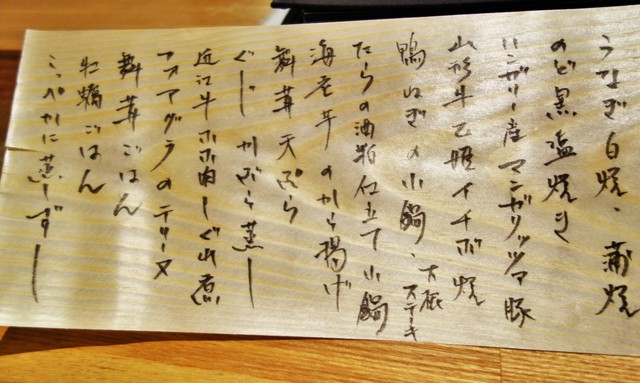 うなぎ白焼、蒲焼
のど黒塩焼き
ハンガリー産マンガリッツァ豚
山形牛乙姫イチボ焼
鴨ねぎの小鍋、大根ステーキ
たらの酒粕仕立て小鍋
海老芋のから揚げ
舞茸天ぷら
ぐーじかぶら蒸し
近江牛ホホ肉しぐれ煮
フォアグラのテリーヌ
舞茸ごはん
牡蠣ごはん
こっぺかに